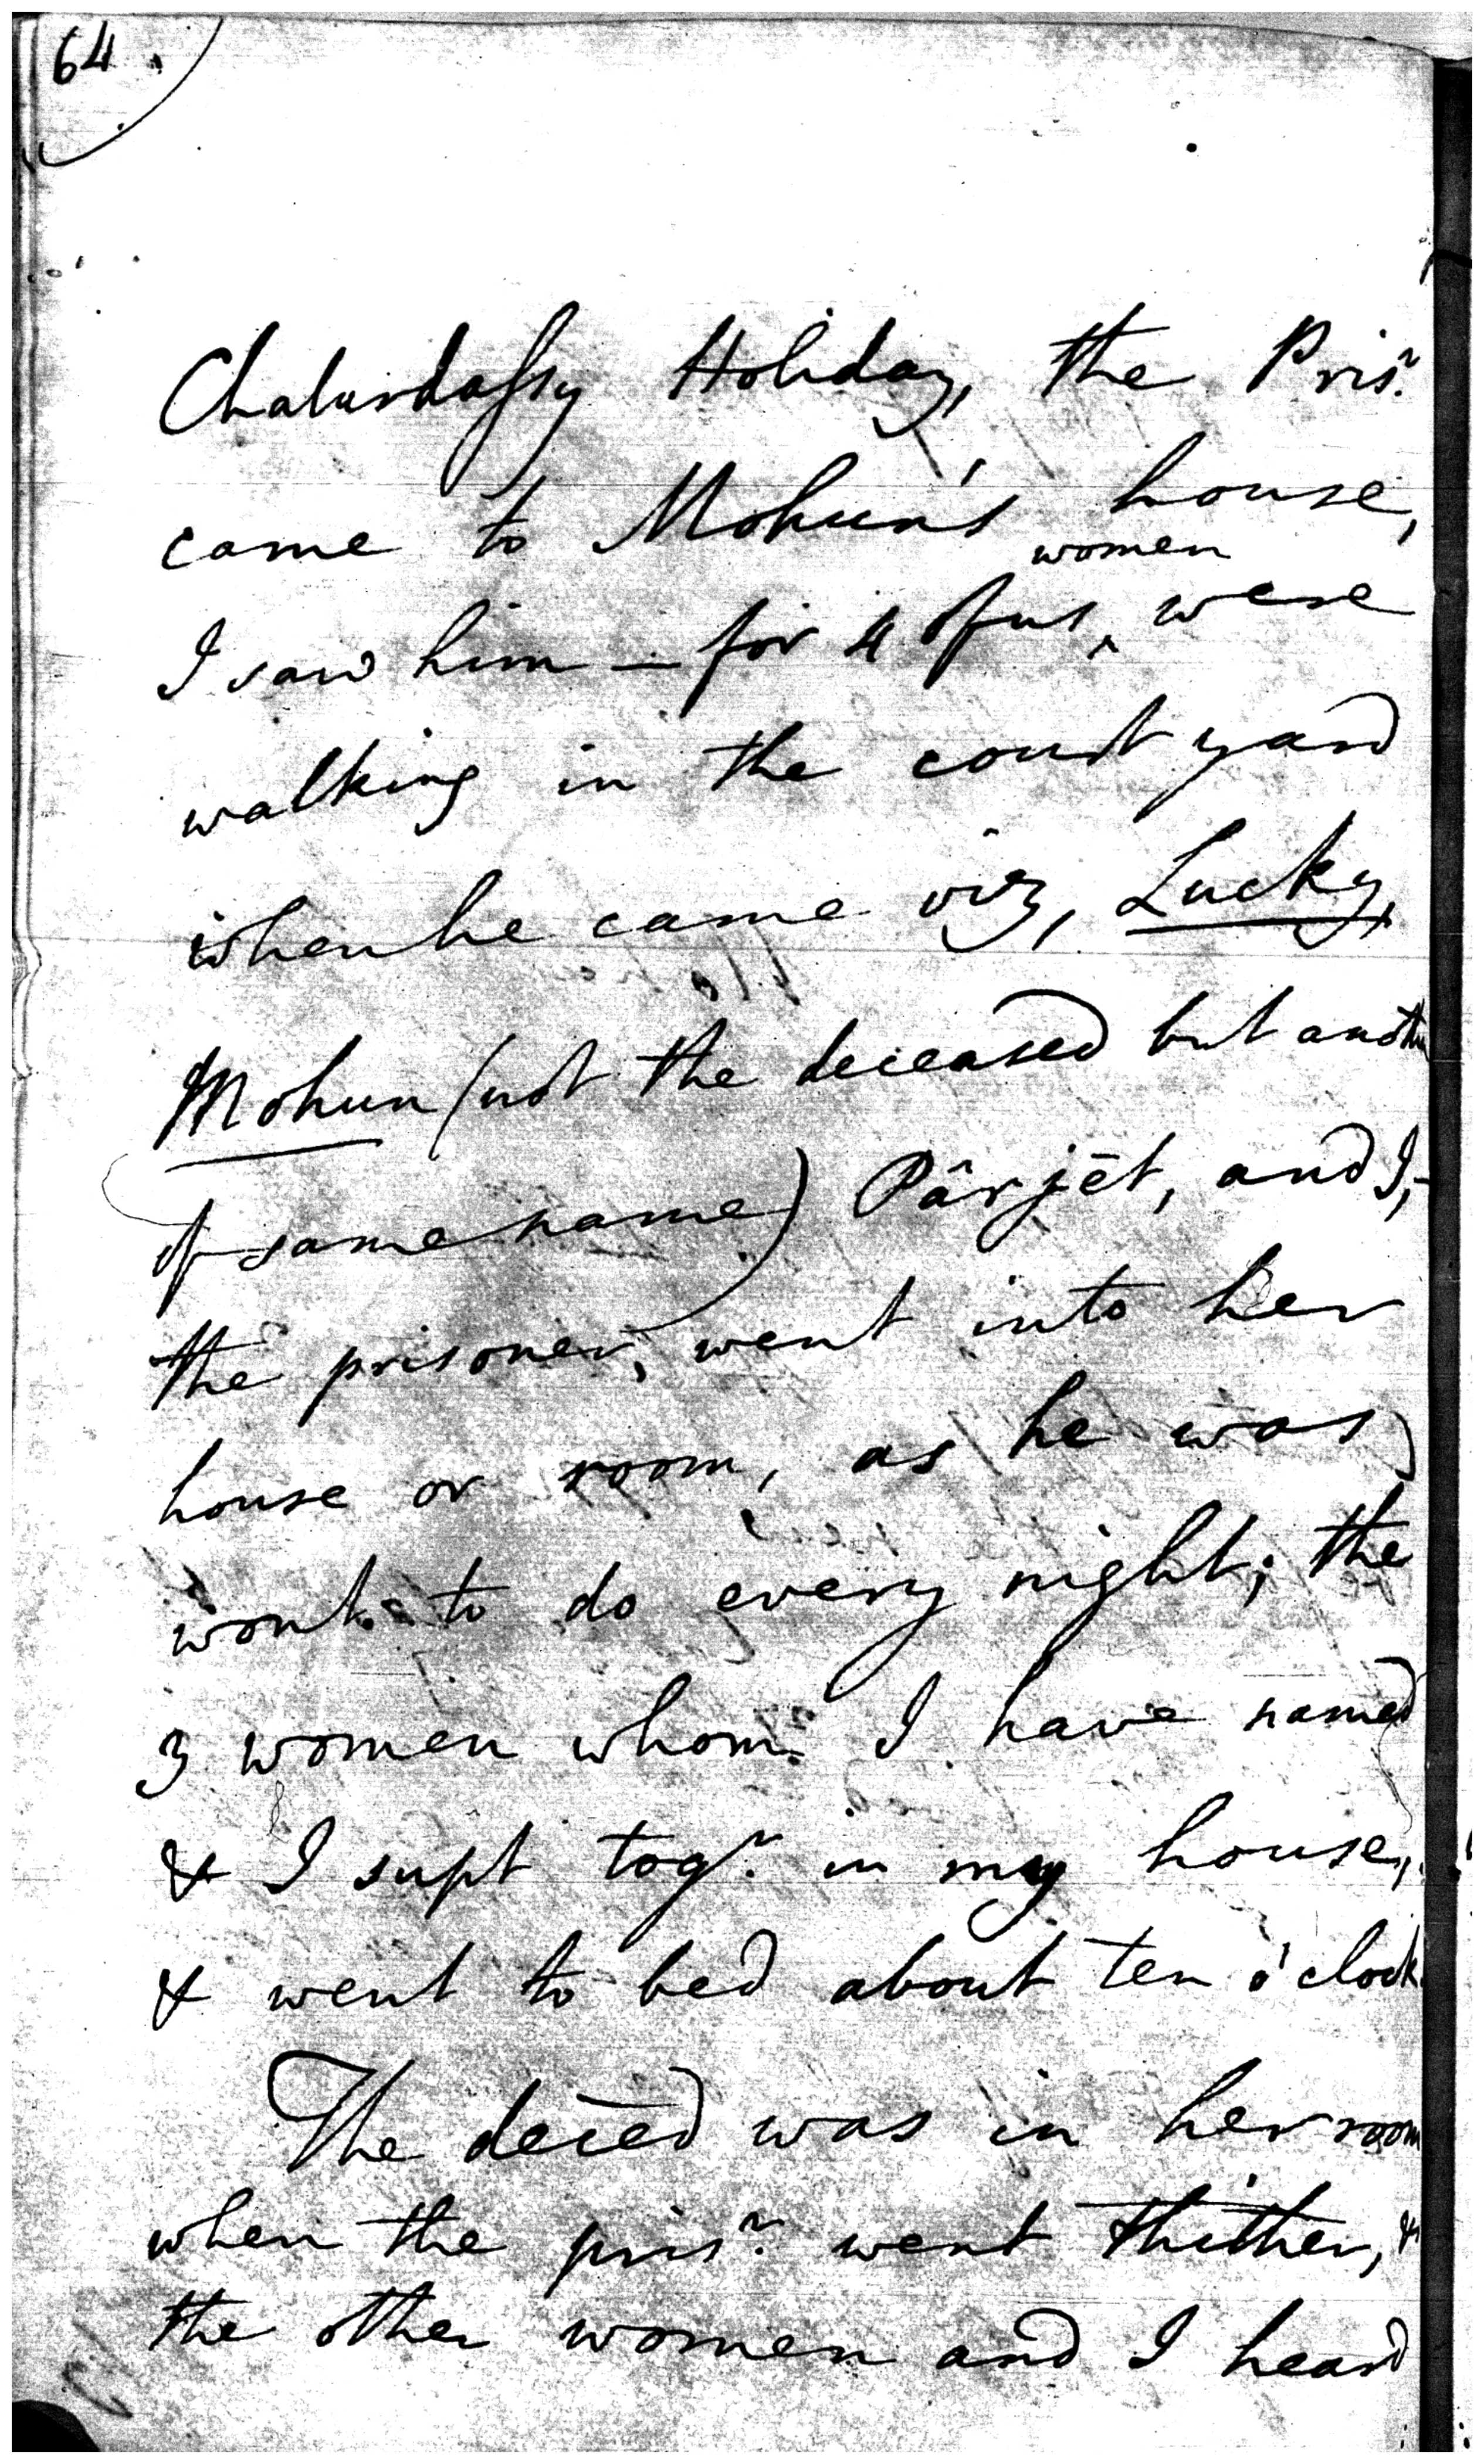 64.
Chaturdaſsy Holiday, the Prisr.
came to Mohun's house,
women
I saw him – for 4 of us ^ were
walking in the court yard
when he came viz, Lucky,
Mohun (not the deceased but another
of same name) Pârjēt, and I,-
the prisoner, went into her
house or room, as he was
wont to do every night; the
3 women whom I have named
& I supt togr. in my house,
& went to bed about ten o'clock
The deced was in her room
when the prisr. went thither, &
the other women and I heard